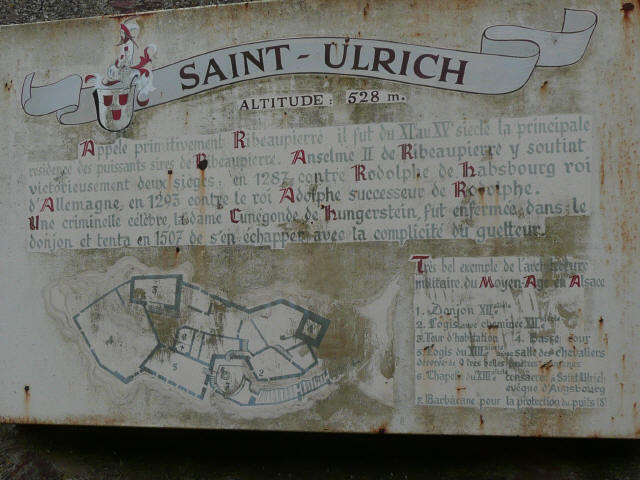 SAINT-ULRICH
ALTITUDE: 528 m.
Appelé primitivement Ribeaupierre il fut du XIe au XVe siècle la principale
résidence des puissants sires de Ribeaupierre. Anselme II de Ribeaupierre y soutint
victorieusement deux sièges: en 1287 contre Rodolphe de Habsbourg roi
d'Allemagne, en 1293 contre le roi Adolphe successeur de Rodolphe.
Une criminelle célèbre, la dame Cunégonde de Hungerstein, fut enfermée dans le
donjon et tenta en 1507 de s'en échapper avec la complicité du guetteur.
Très bel exemple de l'architecture
militaire du Moyen-Age en Alsace
1. Donjon XIIe
2. Logis avec cheminée XIIe
3. Tour d'habitation 4. Basse cour
5. Logis du XIIIe Salle des chevaliers
décorée de 9 très belles fenêtres
6. Chapelle du XIIIe consacrée à Saint Ulrich
évêque d'Augsbourg
7. Barbacane pour la protection du puits (8)